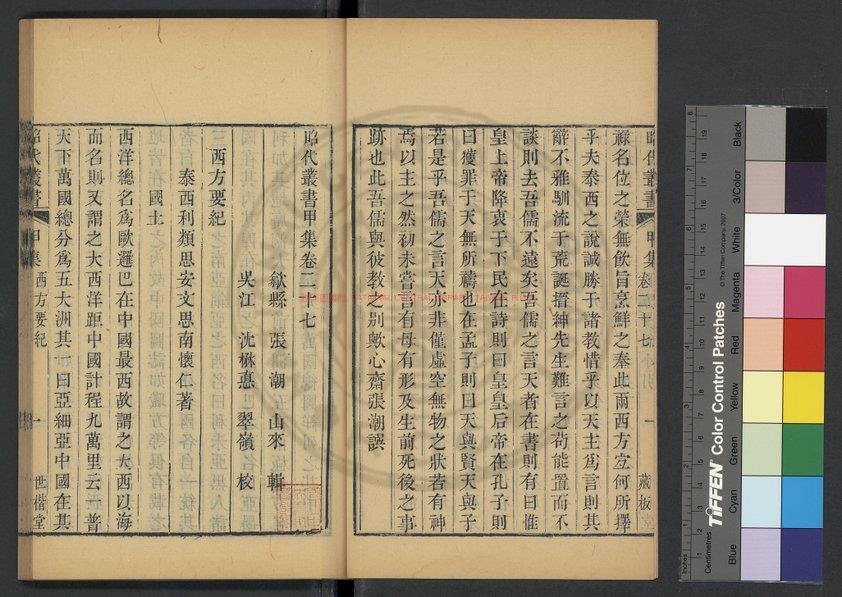 祿名位之榮無飲旨烹鮮之奉此兩西方宜何所擇
乎夫泰西之說誠勝于諸教惜乎以天主爲言則其
辭不雅馴流于荒誕搢紳先生難言之苟能置而不
談則去吾儒不遠矣吾儒之言天者在書則有曰惟
皇上帝降衷于下民在詩則曰皇皇后帝在孔子則
曰獲罪于天無所禱也在孟子則曰天與賢天與子
若是乎吾儒之言天亦非僅虛空無物之狀若有神
焉以主之然初未嘗言有母有形及生前死後之事
跡也此吾儒與彼教之别歟心齋張潮譔
昭代叢書甲集卷二十七
歙縣 張潮 山來 輯
吳江 沈楙悳 翠嶺 校
西方要紀
泰西利類思安文思南懷仁著
國土
西洋總名爲歐邏巴在中國最西故謂之大西以海
而名則又謂之大西洋距中國計程九萬里云一普
天下萬國總分爲五大洲其一曰亞細亞中國在其
昭代叢書 甲集 西方要紀 一 世楷堂
昭代叢書 甲集卷二十七 一 藏板
TIFFEN Color Control Patches
© The Tiffen Company, 2007
Blue Cyan Green Yellow Red Magenta White 3/Color Black
Inches
Centimetres